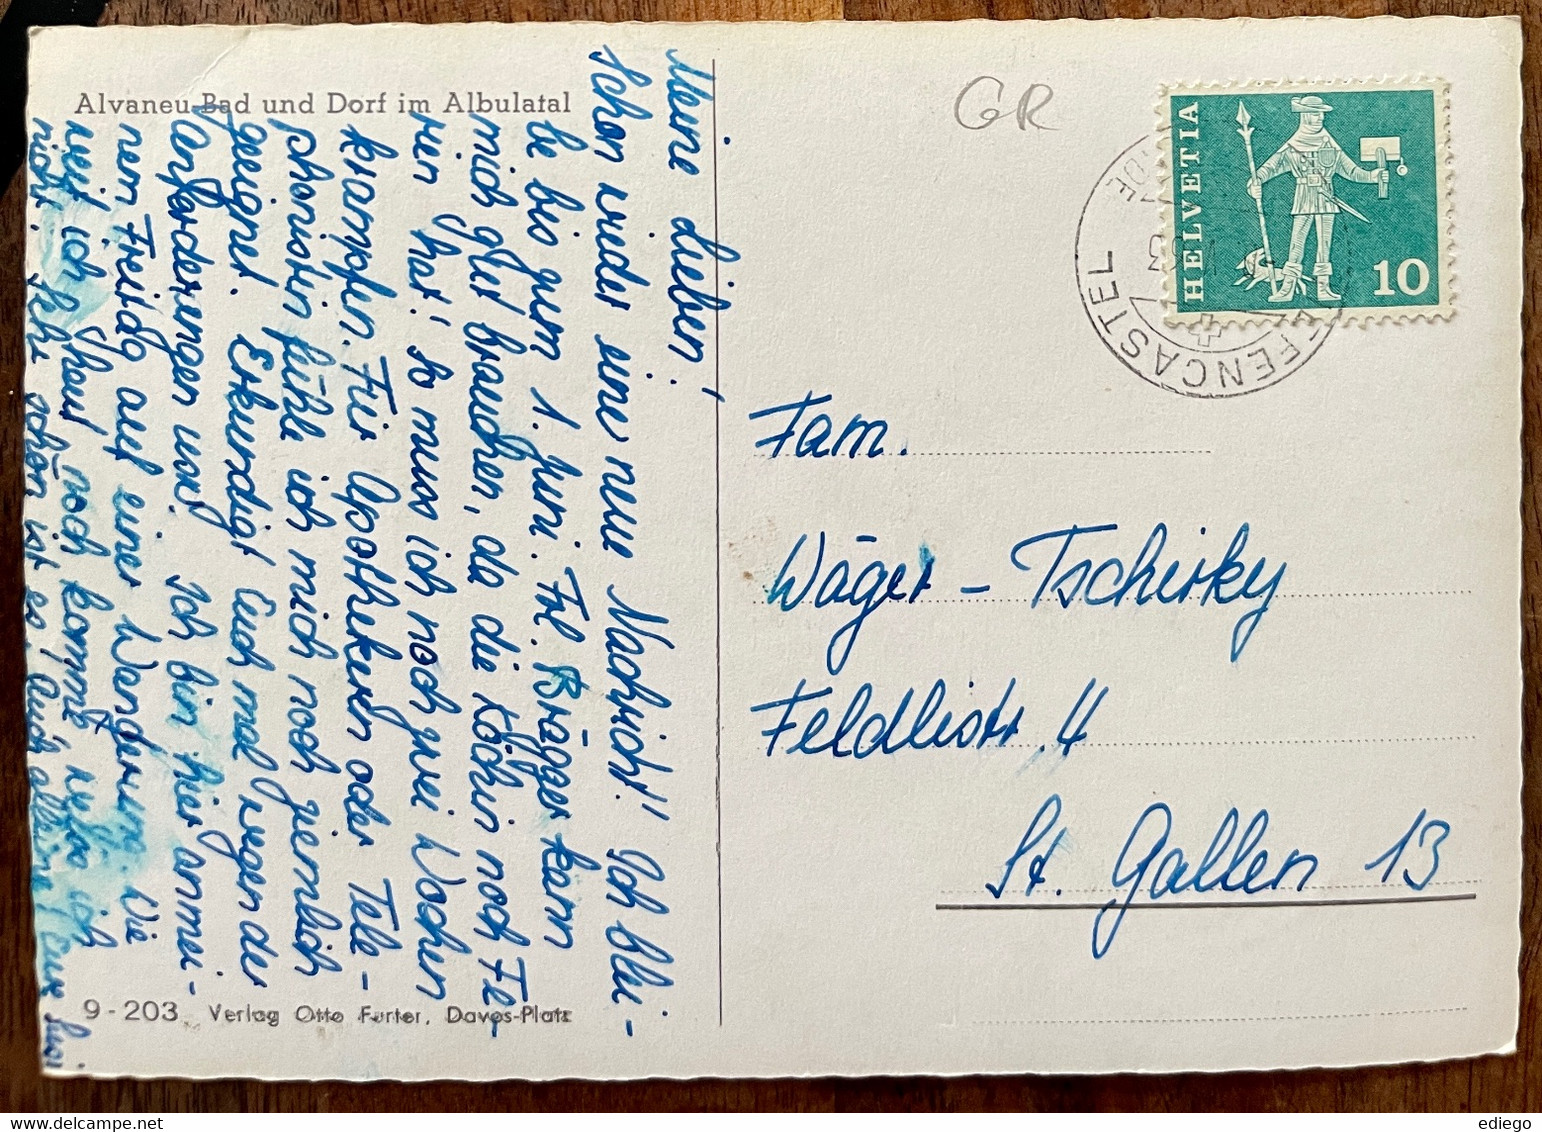 Alvaneu-Bad und Dorf im Albulatal
Meine Lieben!
Schon wieder eine neue Nachricht! Ich blei-
be bis zum 1. Juni. Frl. Brägger kann
mich gut brauchen, da die Köchin noch Fe-
rien hat! So muss ich noch zwei Wochen
krampfen. Für Apothekerin oder Tele-
phonistin fühle ich mich noch ziemlich
geeignet. Erkundigt Euch mal wegen der
Anforderungen usw. Ich bin hier an mei-
nem Freitag auf einer Wanderung. Wie
weit ich heut noch komme, weiss ich
nicht. Sehr schön ist es! Euch alle Eure Susi
9-203 Verlag Otto Furter, Davos-Platz
GR
HELVETIA
10
TIEFENCASTEL
Fam.
Wäger - Tschirky
Feldlistr. 4
St. Gallen 13
ediego